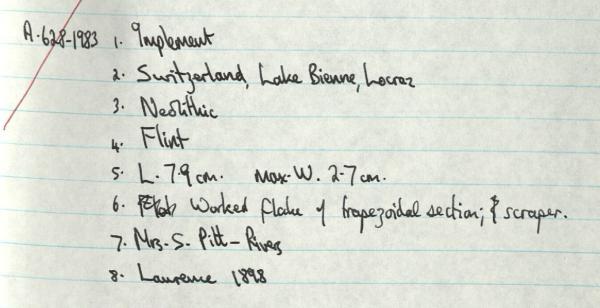 A.628-1983 1. Implement
2. Switzerland, Lake Bienne, Locraz
3. Neolithic
4. Flint
5. L. 7.9 cm. Max. W. 2.7 cm.
6. Worked flake of trapezoidal section; ? scraper.
7. Mrs. S. Pitt-Rivers
8. Laurence 1898